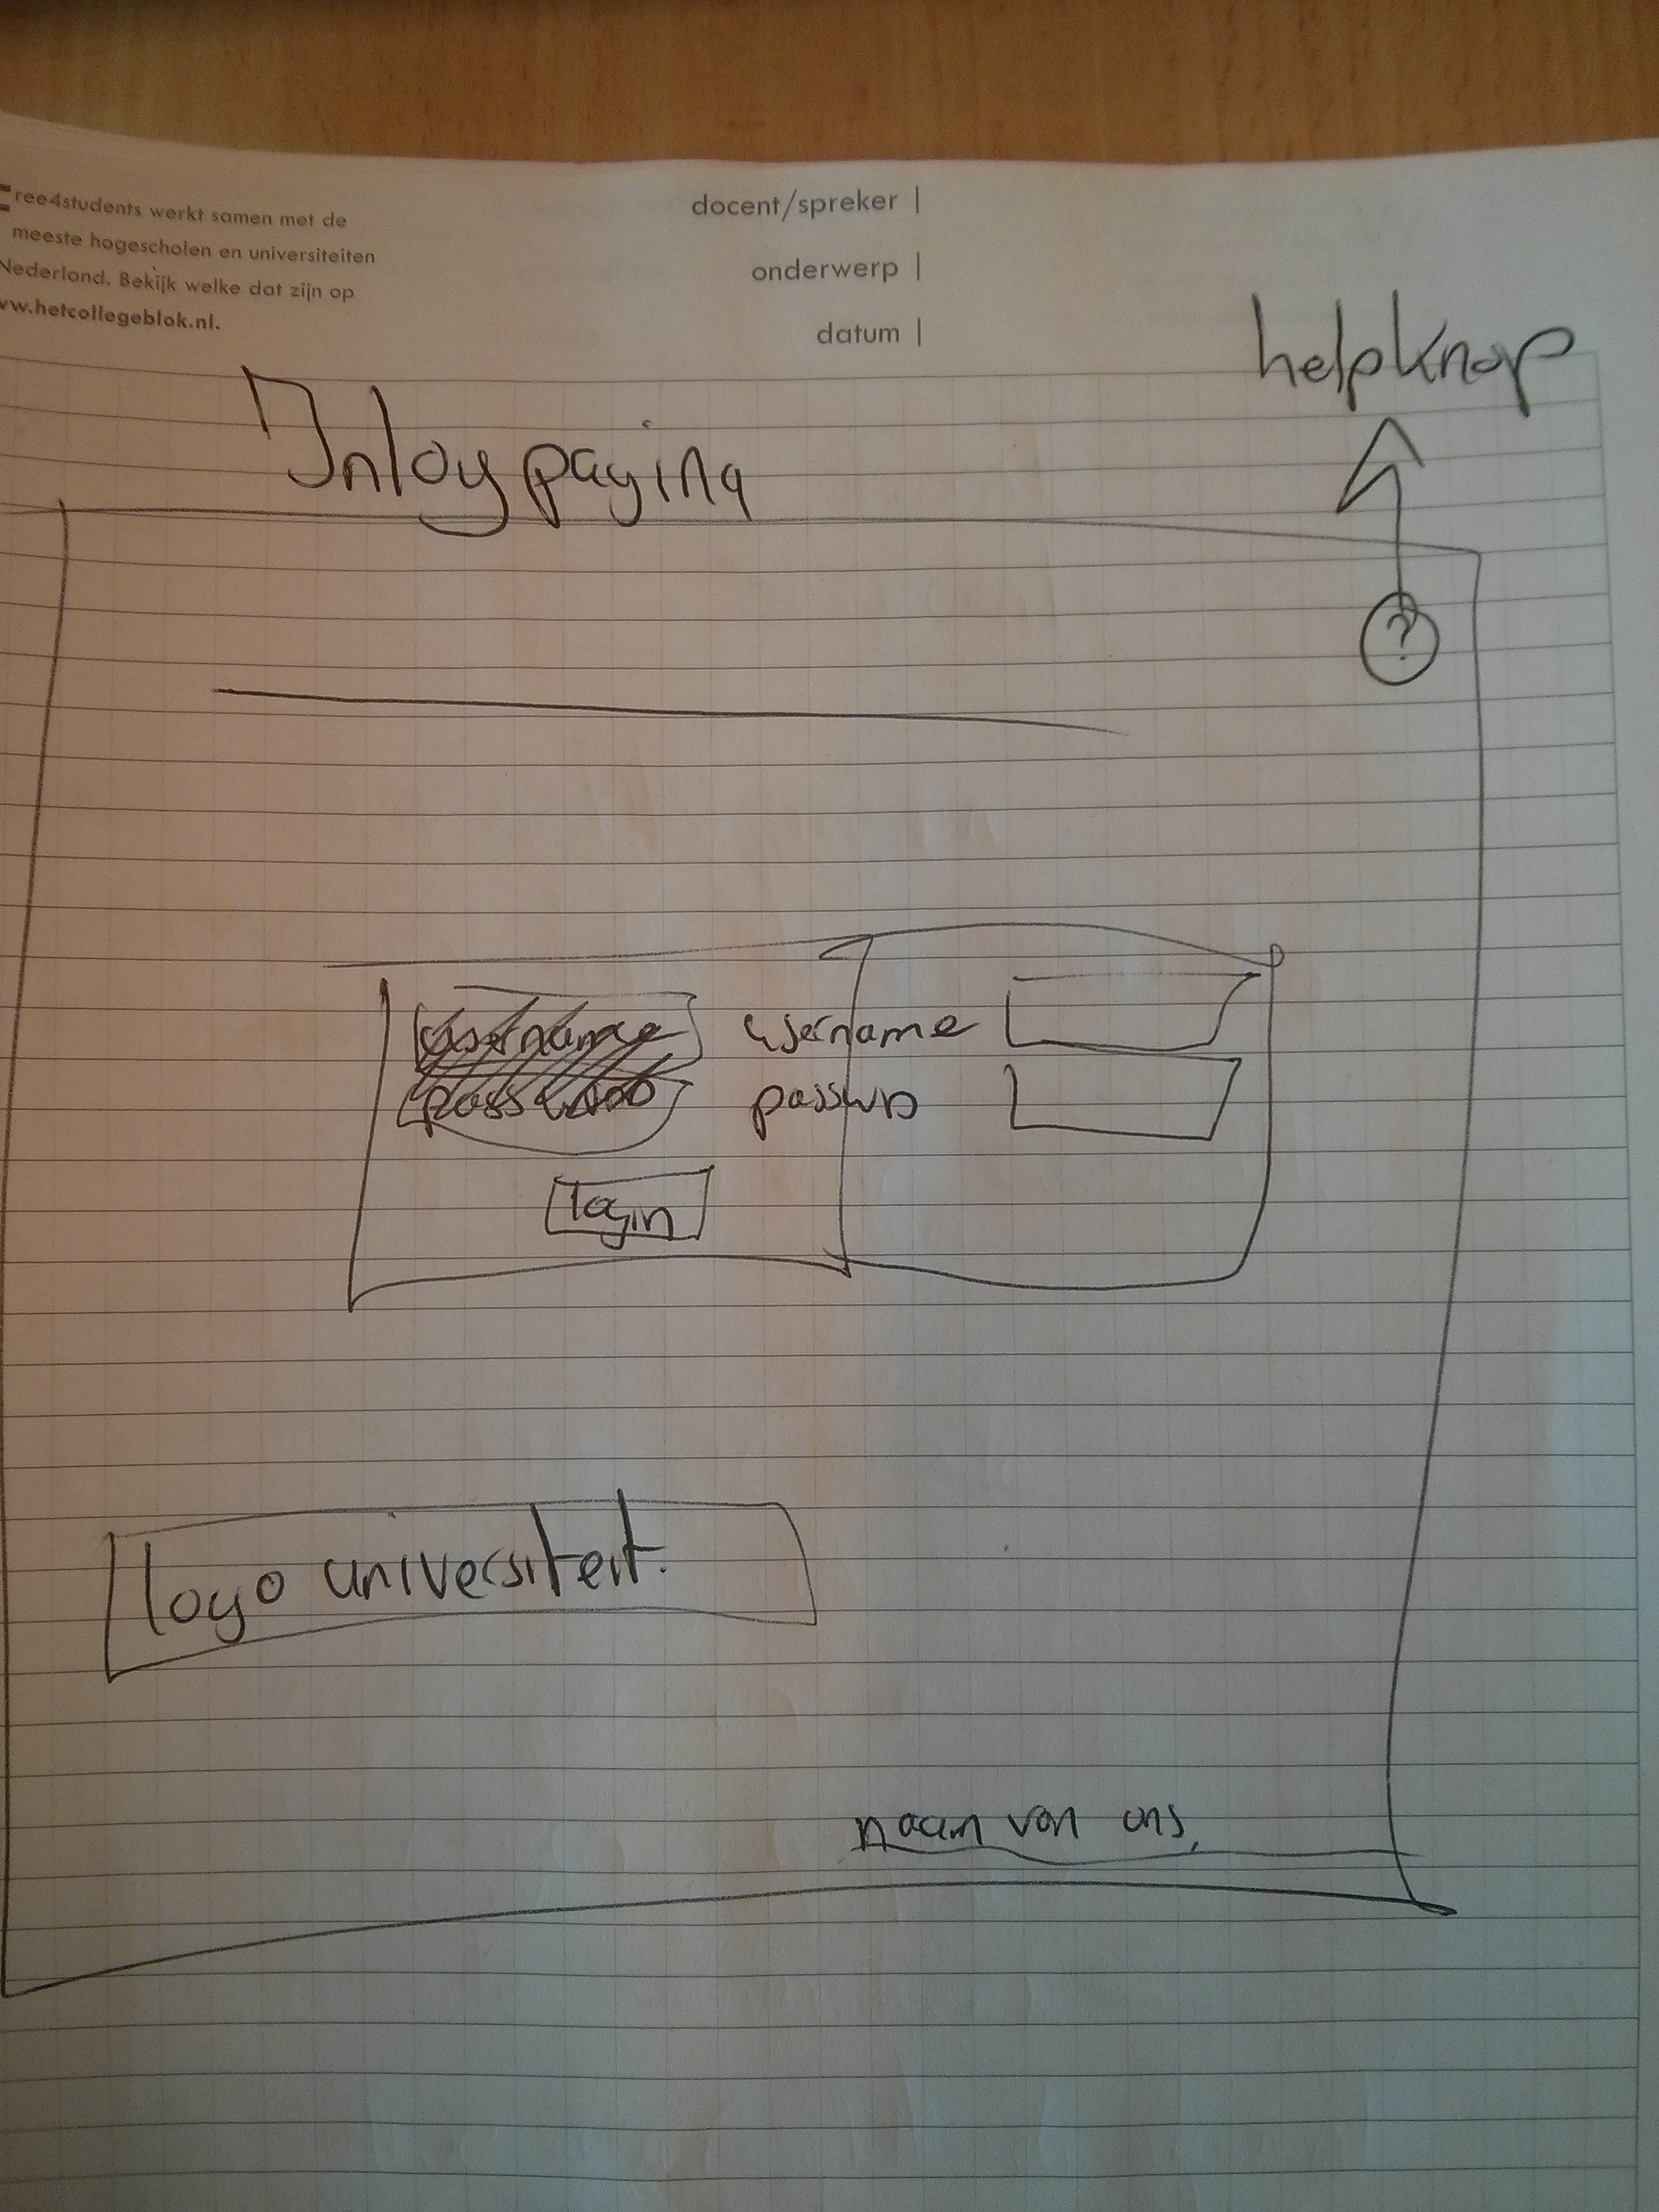 ree4students werkt samen met de
meeste hogescholen en universiteiten
Nederland. Bekijk welke dat zijn op
ww.hetcollegeblok.nl.
docent/spreker |
onderwerp |
datum |
helpknop
Inlog pagina
?
username
username
passwo
login
logo universiteit.
naam van ons,